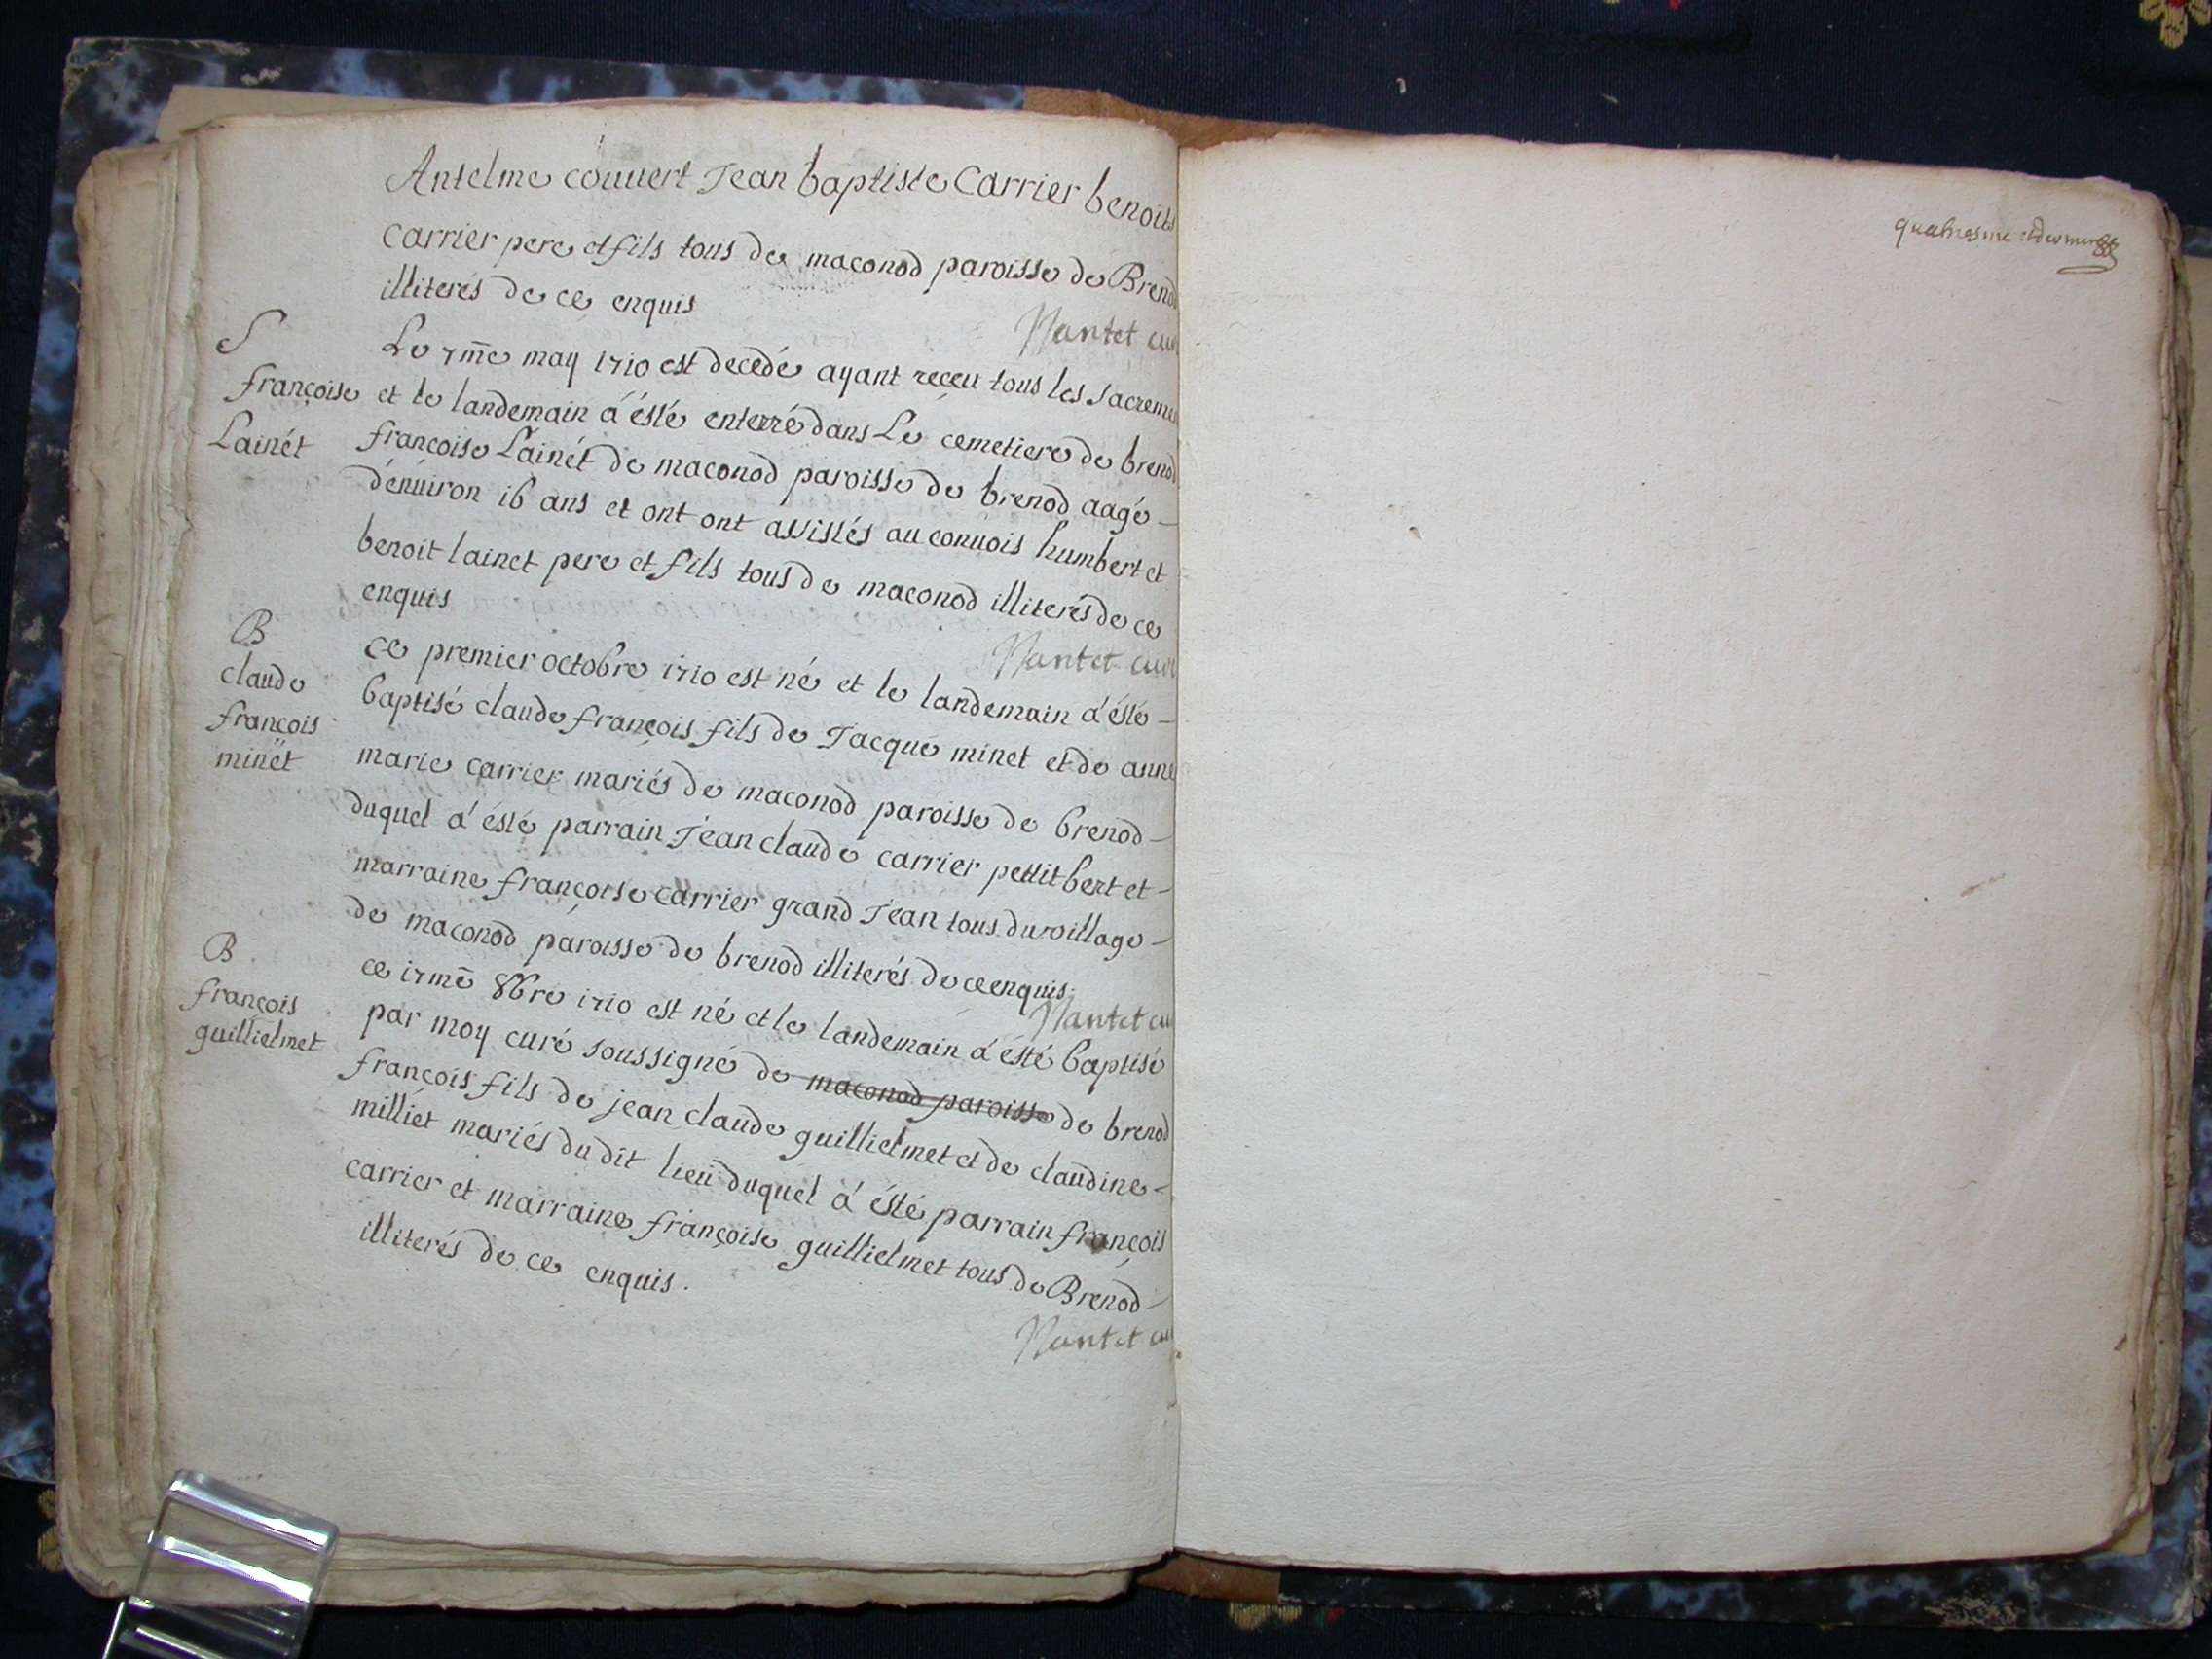 Antelme couuert Jean baptiste Carrier benoits
carrier pere et fils tous de maconod paroisse de Brenod
illiterés de ce enquis
Nantet cur
S
françoise
Lainét
Le 7me may 1710 est decedé ayant receu tous les sacreme
et le landemain á ésté enterré dans Le cemetiere de brenod
francoise Láinét de maconod paroisse de brenod aagé -
dénuiron 16 ans et ont ont assistés au conuois humbert et
benoit lainet pere et fils tous de maconod illiterés de ce
enquis
Nantet cur
B
claude
françois
minet
ce premier octobre 1710 est né et le landemain á ésté -
baptisé claude françois fils de Jacque minet et de anne
marie carrier mariés de maconod paroisse de brenod -
duquel á ésté parrain Jean claude carrier pettit bert et -
marraine françoise carrier grand Jean tous du village -
de maconod paroisse de brenod illiterés de ce enquis.
Nantet cu
B
françois
guillielmet
ce 17me 8bre 1710 est né et le landemain á ésté baptisé
par moy curé soussigné de maconod paroisse de brenod
françois fils de jean claude guillielmet et de claudine -
milliet mariés du dit lieu duquel á ésté parrain françois
carrier et marraine françoise guillielmet tous de Brenod -
illiterés de ce enquis.
Nantet cu
quatriesme et